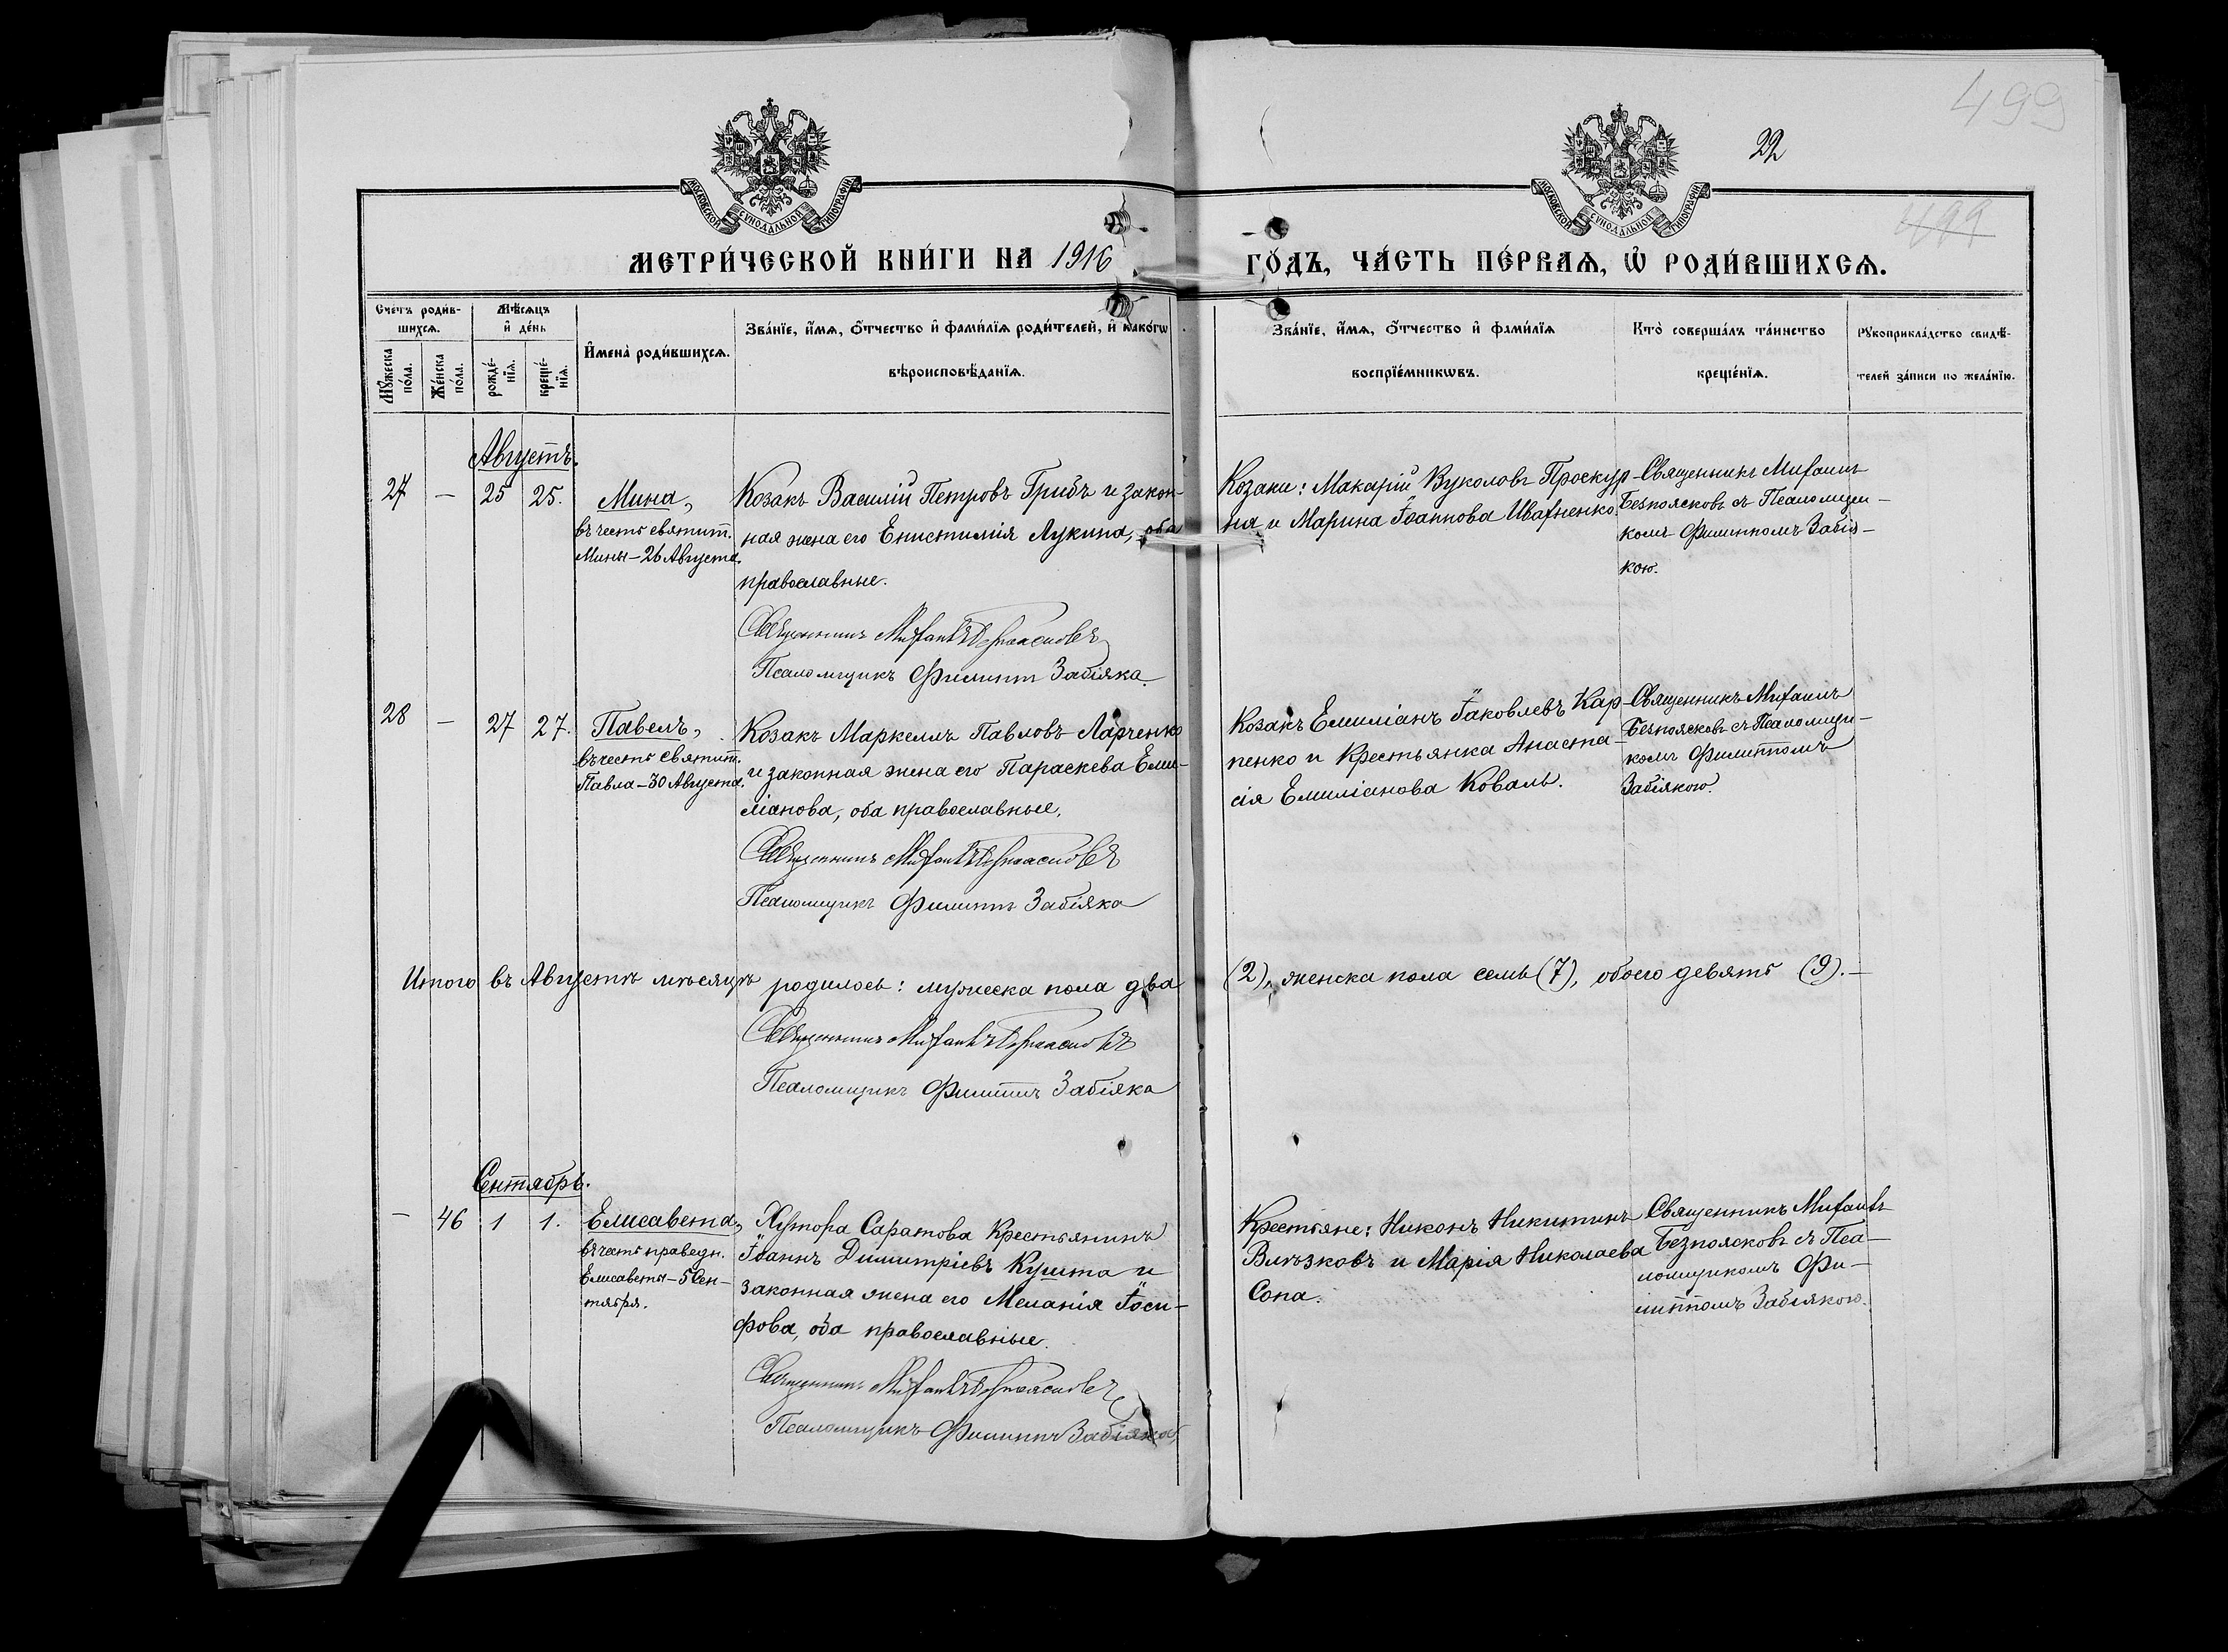 499
22
499
МОСКОВСКОЙ СУНОДАЛЬНОЙ ТИПОГРАФІИ
МОСКОВСКОЙ СУНОДАЛЬНОЙ ТИПОГРАФІИ
МЕТРИ́ЧЕСКОЙ КНИ́ГИ НА 1916
ГО́ДЪ, ЧА́СТЬ ПЕ́РВАѦ, Ѡ҆ РОДИ́ВШИХСѦ.
Сче́тъ роди́в-
шихсѧ.
Мꙋ́жеска по́ла.
Же́нска по́ла.
Мѣ́сѧцъ
и҆ де́нь
рожде́-
нїѧ.
креще́-
нїѧ.
И҆мена̀ роди́вшихсѧ.
Зва́нїе, и҆́мѧ, ѻ҆́тчество и҆ фами́лїѧ роди́телей, и҆ како́гѡ
вѣроисповѣ́данїѧ.
Зва́нїе, и҆́мѧ, ѻ҆́тчество и҆ фами́лїѧ
воспрїе́мникѡвъ.
Кто̀ соверша́лъ та́инство
креще́нїѧ.
Рꙋкоприкла́дство свидѣ́-
телей за́писи по жела́нїю.
Августъ.
27 — 25 25. Мина,
въ честь святит.
Мины – 26 Августа.
Козакъ Василій Петровъ Грибъ и закон-
ная жена его Епистимія Лукина, оба
православные.
Священникъ Митрофанъ Безпоясковъ
Псаломщикъ Филиппъ Забіяка
Козаки: Макарій Вуколовъ Проскур-
ня и Марина Іоаннова Ивахненко
Священникъ
Безпоясковъ съ Псаломщи-
комъ Филиппомъ Забія-
кою.
28 — 27 27. Павелъ,
въ честь святит.
Павла – 30 Августа.
Козакъ Маркеллъ Павловъ Ларченко
и законная жена его Параскева Еми-
ліанова, оба православные.
Священникъ Безпоясковъ
Псаломщикъ Филиппъ Забіяка
Козакъ Емиліанъ Іаковлевъ Кар-
пенко и Крестьянка Анаста-
сія Емиліанова Коваль.
Священникъ
Безпоясковъ съ Псаломщи-
комъ Филиппомъ
Забіякою.
Итого въ Августѣ мѣсяцѣ родилось: мужеска пола два
(2), женска пола семь (7), обоего девять (9). —
Священникъ Безпоясковъ
Псаломщикъ Филиппъ Забіяка
Сентябрь.
— 46 1 1. Елисавета,
въ честь праведн.
Елисаветы – 5 Сен-
тября.
Хутора Саратова Крестьянинъ
Іоаннъ Димитріевъ Кушта и
законная жена его Меланія Іоси-
фова, оба православные.
Священникъ Безпоясковъ
Псаломщикъ Филиппъ Забіяка
Крестьяне: Никонъ Никитинъ
и Марія Николаева
Сопа.
Священникъ
Безпоясковъ съ Пса-
ломщикомъ Фи-
липпомъ Забіякою.